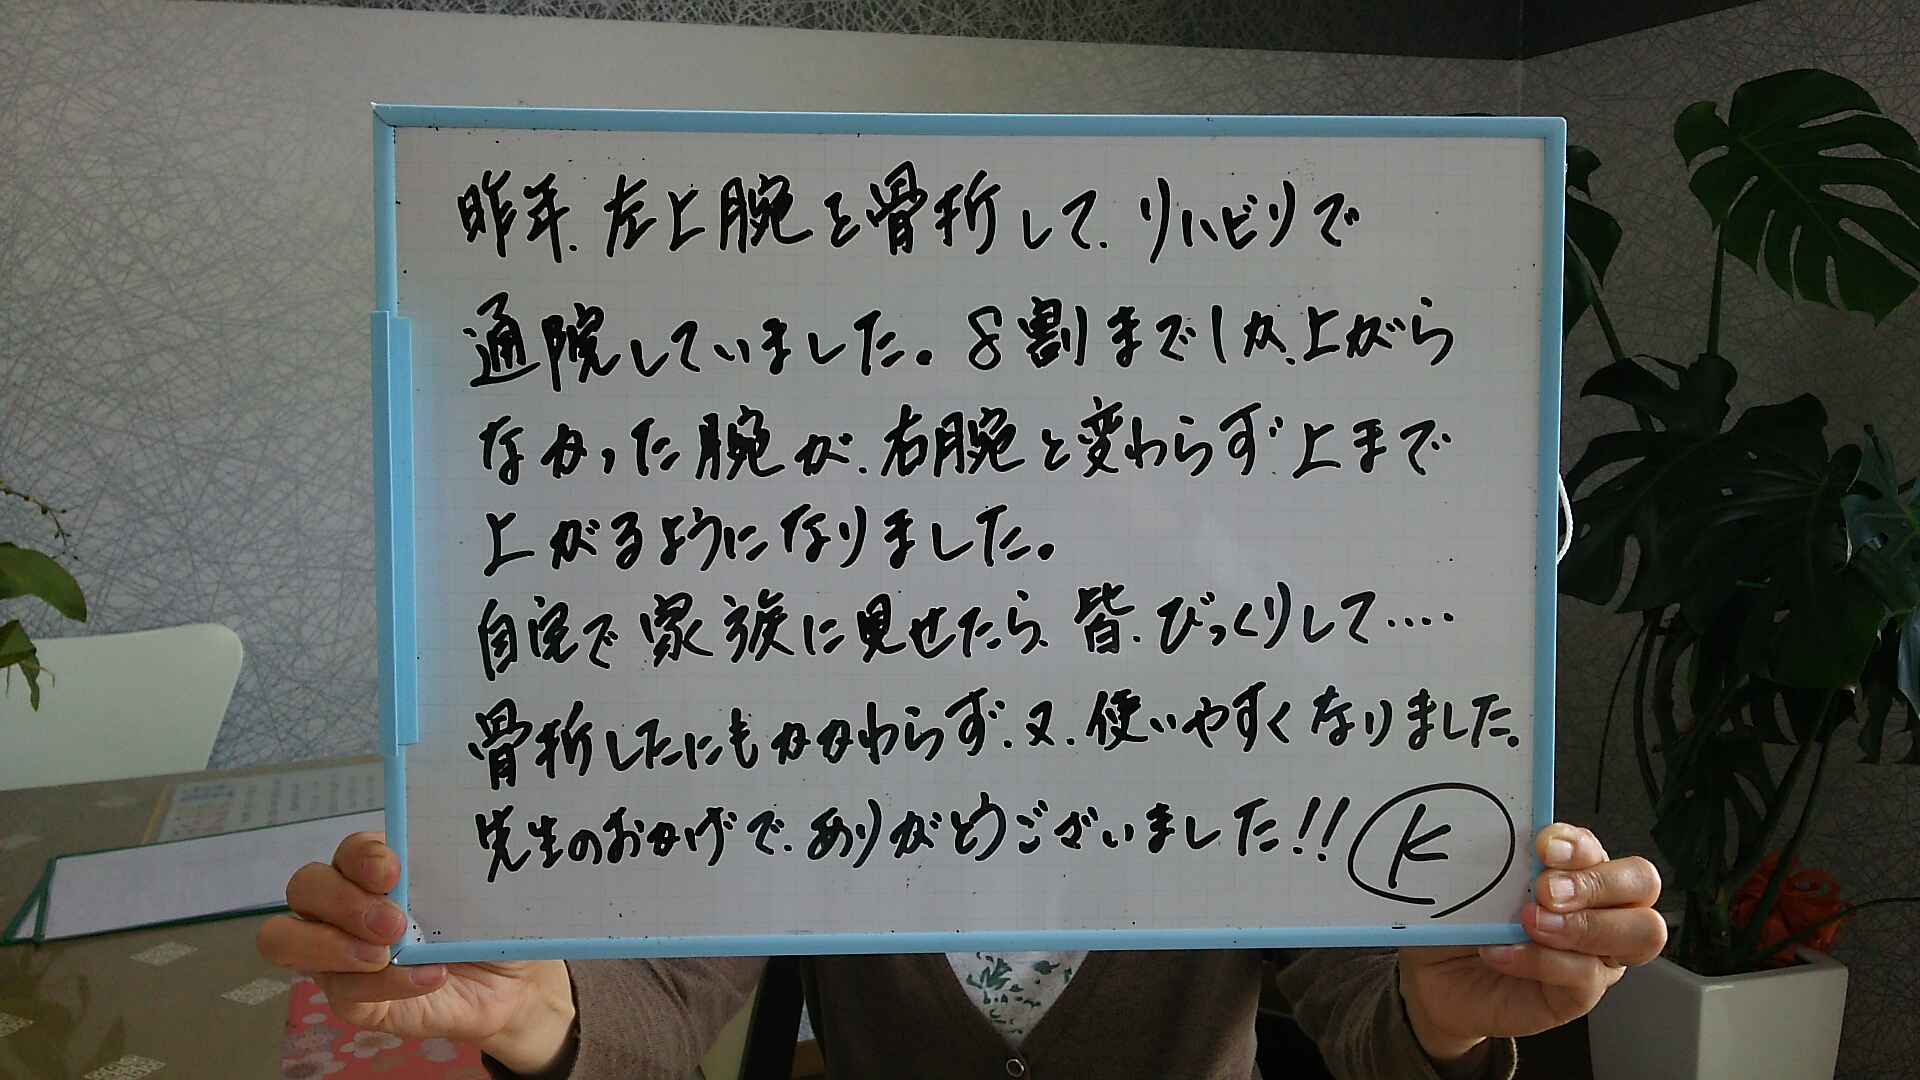 昨年、左上腕を骨折して、リハビリで
通院していました。8割までしか、上がら
なかった腕が、右腕と変わらず上まで
上がるようになりました。
自宅で家族に見せたら、皆、びっくりして‥‥
骨折したにもかかわらず、又、使いやすくなりました。
先生のおかげで、ありがとうございました!! K